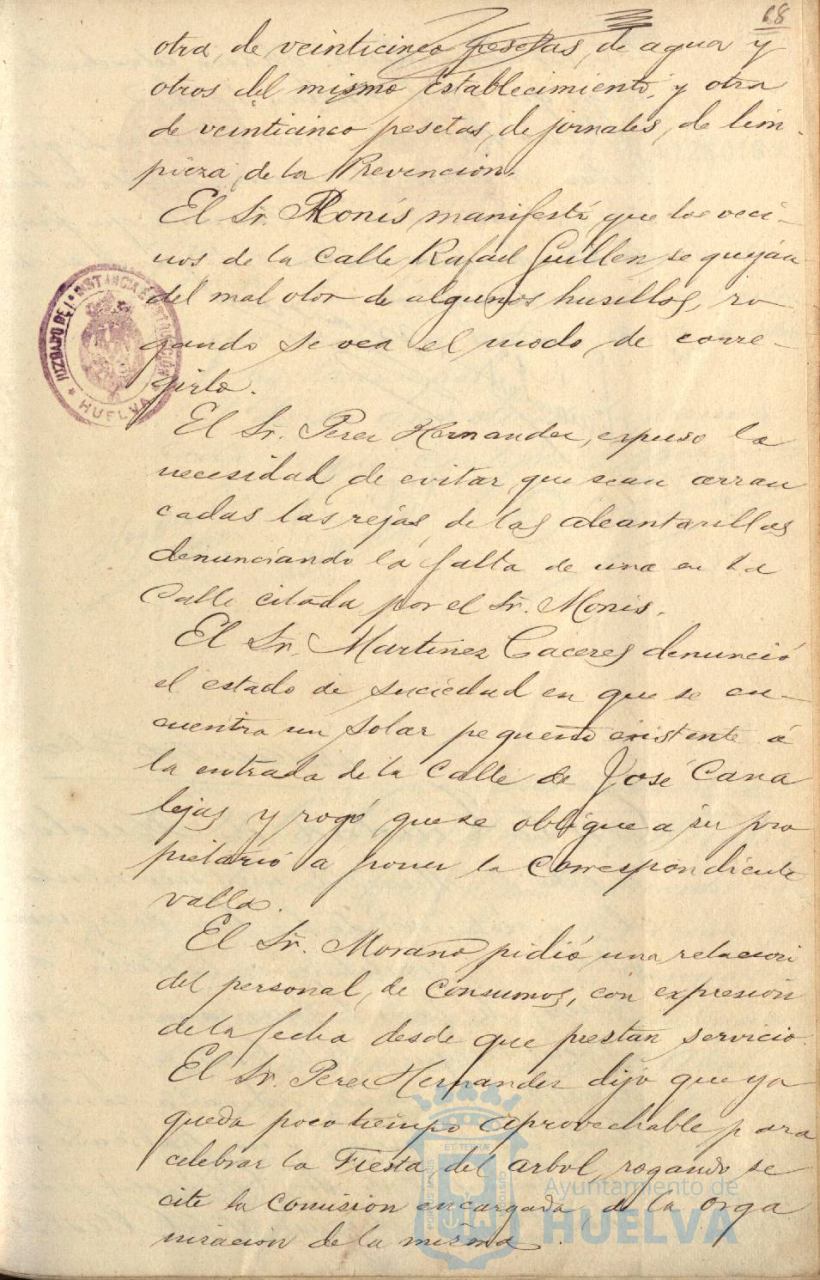 68
otra, de veinticinco pesetas, de agua y
otros del mismo Establecimiento, y otra
de veinticinco pesetas, de jornales, de lim-
pieza, de la Prevencion.
El Sr. Monis manifestó que los veci-
nos de la Calle Rafael Guillen se quejan
del mal olor de algunos husillos, ro
gando se vea el modo de corre-
girlo.
El Sr. Perez Hernandez, expuso la
necesidad de evitar que sean arran
cadas las rejas, de las alcantarillas
denunciando la falta de una en la
Calle citada por el Sr. Monis.
El Sr. Martinez Caceres denunció
el estado de suciedad en que se en-
cuentra un solar pequeño existente á
la entrada de la Calle de José Cana
lejas y rogó que se obligue a su pro
pietario a poner la correspondiente
valla.
El Sr. Morano pidió una relacion
del personal, de Consumos, con expresion
de la fecha desde que prestan servicio.
El Sr. Perez Hernandez dijo que ya
queda poco tiempo aprovechable para
celebrar la Fiesta del arbol, rogando se
cite la Comision encargada de la orga
nizacion de la misma.
JUZGADO DE 1ª INSTANCIA E INSTRUCCIÓN
* HUELVA *
Ayuntamiento de
HUELVA